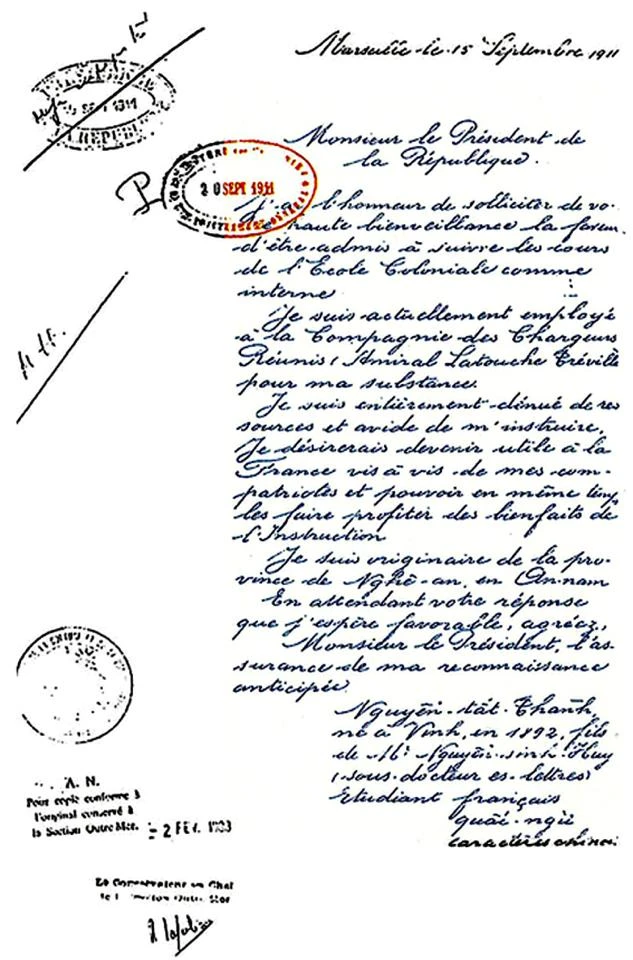 Marseille le 15 Septembre 1911
Monsieur le Président de
la République.
20 SEPT 1911
J'ai l'honneur de solliciter de vo-
tre haute bienveillance la faveur
d'être admis à suivre les cours
de l'Ecole Coloniale comme
interne
Je suis actuellement employé
à la Compagnie des Chargeurs
Réunis (Amiral Latouche Tréville
pour ma substance.
Je suis entièrement dénué de res
sources et avide de m'instruire.
Je désirerais devenir utile à la
France vis à vis de mes com-
patriotes et pouvoir en même temps
les faire profiter des bienfaits de
l'Instruction
Je suis originaire de la pro-
vince de Nghê-an, en An-nam
En attendant votre réponse
que j'espère favorable, agréez,
Monsieur le Président, l'as-
surance de ma reconnaissance
anticipée
Nguyên-tât-Thanh,
né à Vinh, en 1892, fils
de Mr Nguyên-sinh-Huy
(sous-docteur es-lettres)
Etudiant français
quâi-ngù
caractères chinois
A. N.
Pour copie conforme à
l'original conservé à
la Section Outre-Mer.
- 2 FEV. 1983
Le Conservateur en Chef
de la Section Outre-Mer